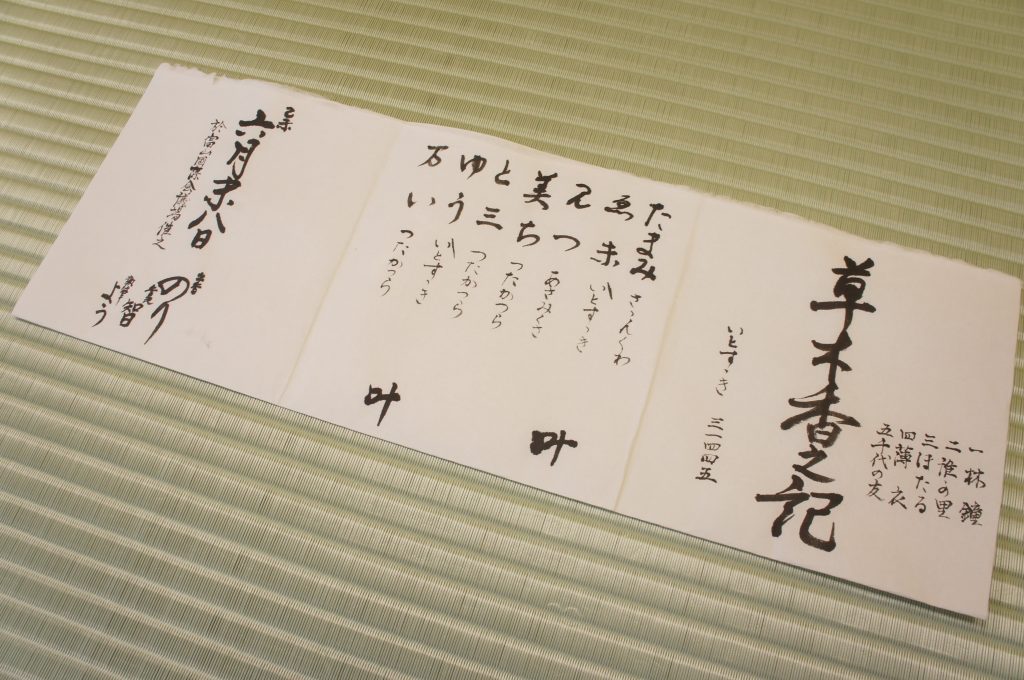 一 林 鐘
二 誰の里
三 ほたる
四 薄 衣
五 千代の友
草木香之記
いとすゝき 三一四四五
たまみ さゝんくわ
ゑ未 いとすゝき
えつ あさみくさ 叶
美ち つたかつら
と三 つたかつら
ゆう いとすゝき
万い つたかつら 叶
乙未
六月末八日
のり
智
よう